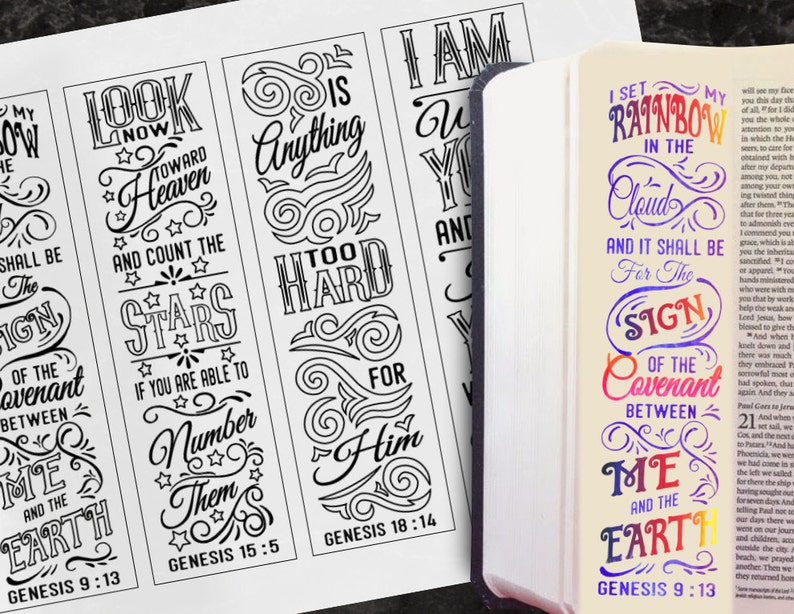 MY
THE
SHALL BE
The
SIGN
OF THE
Covenant
BETWEEN
ME
AND THE
EARTH
GENESIS 9:13
LOOK
NOW
TOWARD
Heaven
AND COUNT THE
STARS
IF YOU ARE ABLE TO
Number
Them
GENESIS 15:5
IS
Anything
TOO
HARD
FOR
Him
GENESIS 18:14
I AM
AND
I SET MY
RAINBOW
IN THE
Cloud
AND IT SHALL BE
For The
SIGN
OF THE
Covenant
BETWEEN
ME
AND THE
EARTH
GENESIS 9:13
will see my face
you this day that
of all, 27 for I did
you the whole
attention to you
in which the H
seers, to care for
obtained with h
after my depart
among you, not
among your own
ing twisted thing
after them.
that for three yea
to admonish eve
I commend you
grace, which is ab
you the inheritan
sanctified.
or apparel.
hands ministered
who were with m
you that by work
help the weak and
Lord Jesus, how
blessed to give th
36 And when h
knelt down and
there was much
they embraced P
sorrowful most o
had spoken, that
again. And they a
Paul Goes to Jeru
21 And when
set sail, we
Cos, and the next
to Patara.
Phoenicia, we wen
we had come in s
the left we sailed
for there the ship
having sought out
for seven days. And
telling Paul not to
our days there w
went on our journ
and children, acco
outside the city. A
beach, we prayed
another. Then we
they returned hom